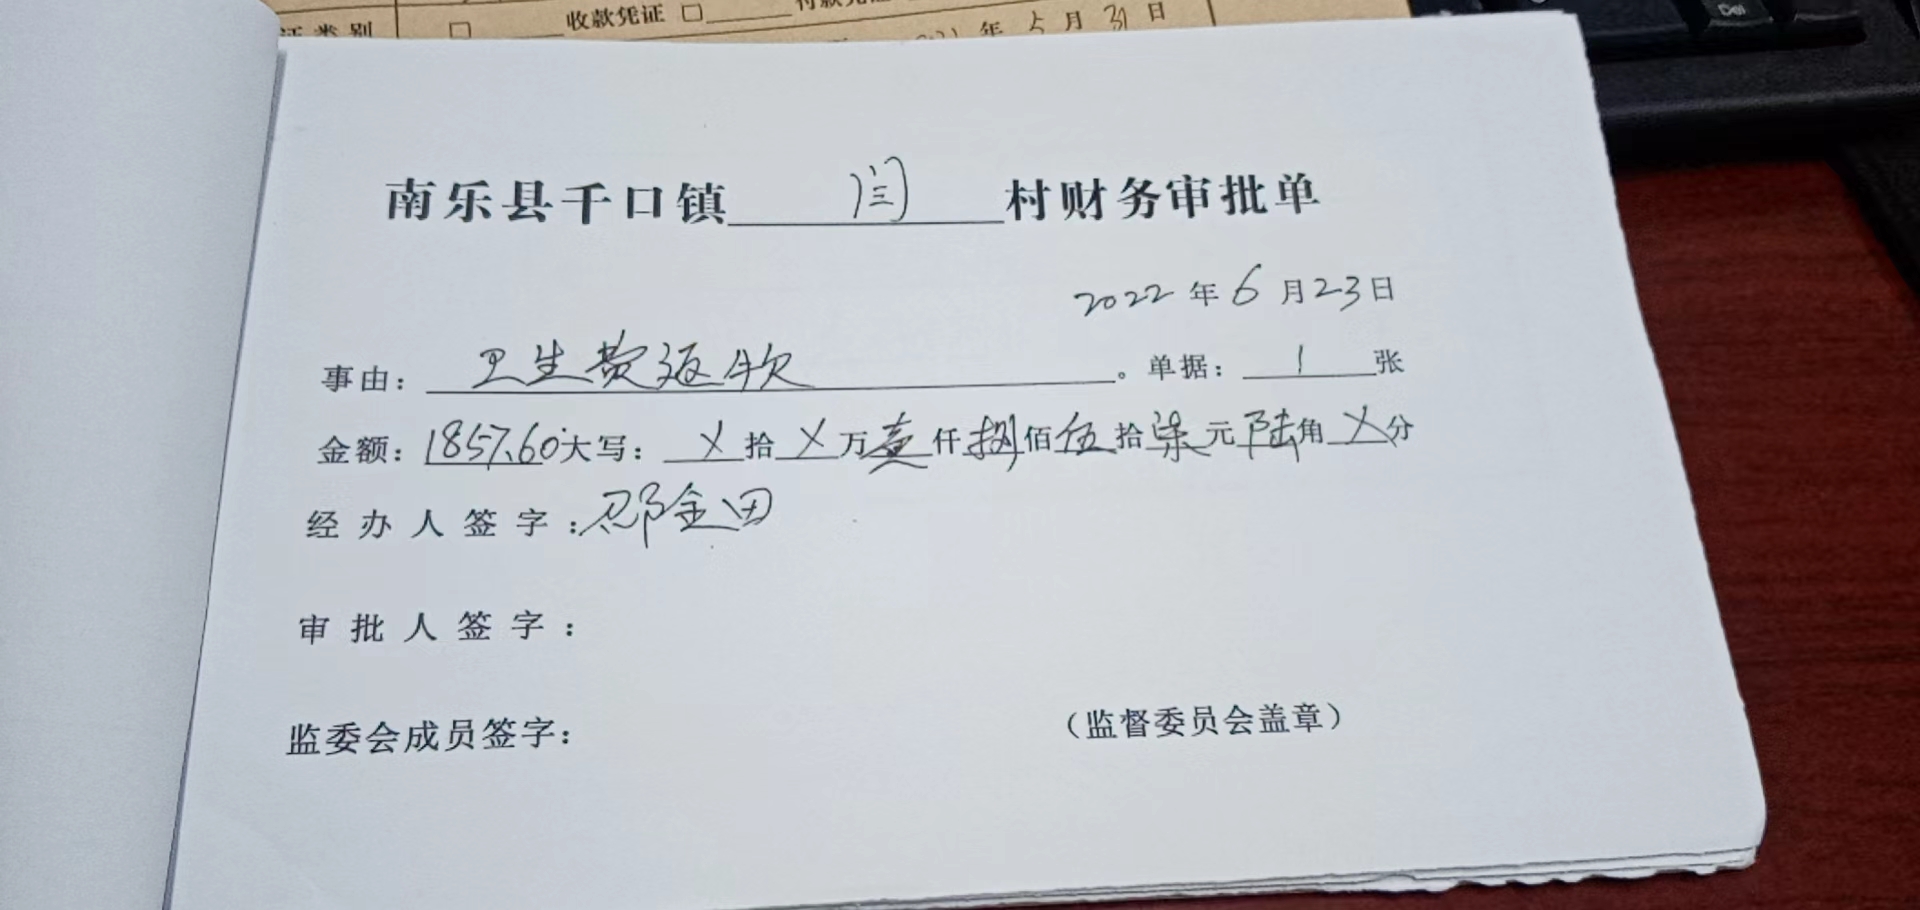 证类别 □ 收款凭证 □ 付款凭证
年 5 月 31 日
Del
南乐县千口镇 闫 村财务审批单
2022 年 6 月 23 日
事由： 卫生费返款 。单据： 1 张
金额：1857.60 大写： X 拾 X 万 壹 仟 捌 佰 伍 拾 柒 元 陆 角 X 分
经办人签字：邓金田
审批人签字：
监委会成员签字：
（监督委员会盖章）